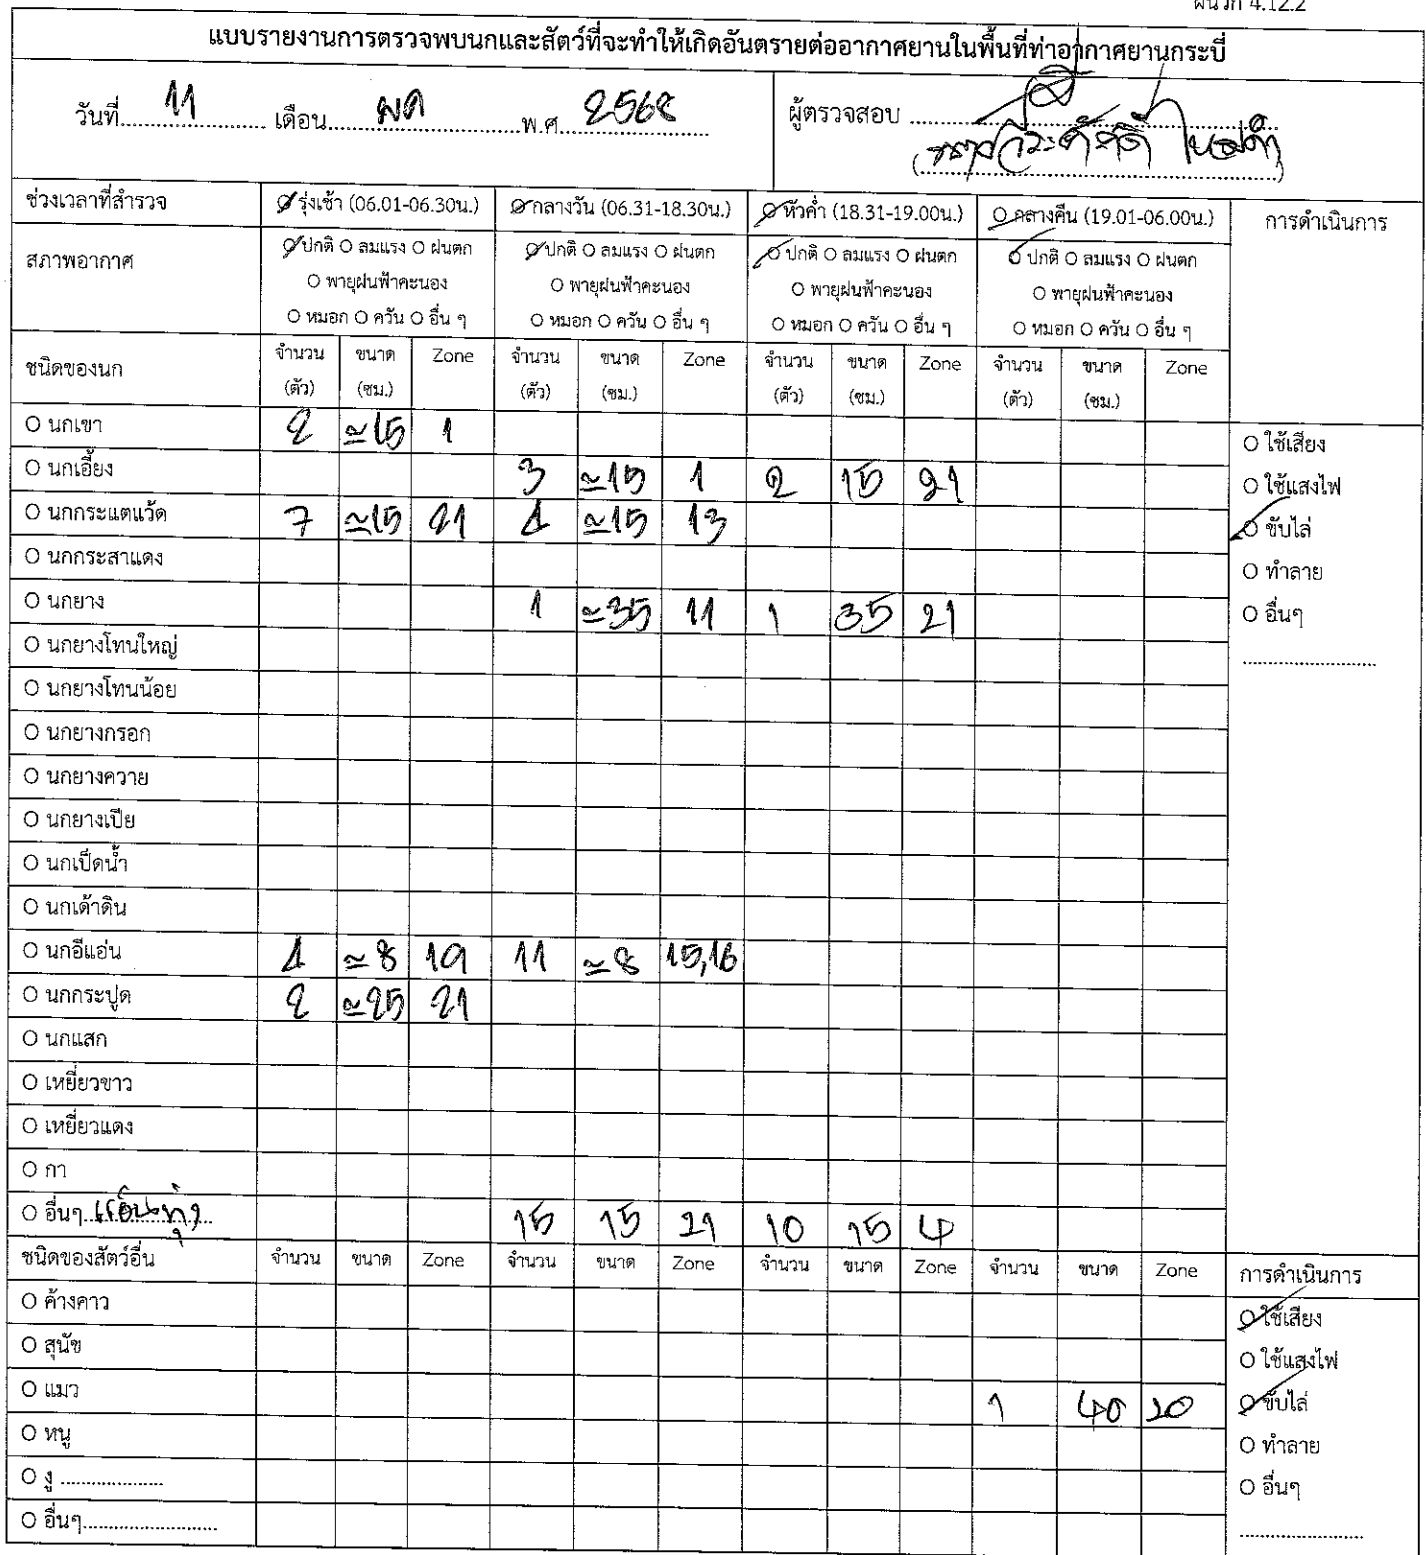 ผนวก 4.12.2
แบบรายงานการตรวจพบนกและสัตว์ที่จะทำให้เกิดอันตรายต่ออากาศยานในพื้นที่ท่าอากาศยานกระบี่
วันที่ 11 เดือน พค พ.ศ. 2568 ผู้ตรวจสอบ
ช่วงเวลาที่สำรวจ รุ่งเช้า (06.01-06.30น.) กลางวัน (06.31-18.30น.) หัวค่ำ (18.31-19.00น.) กลางคืน (19.01-06.00น.) การดำเนินการ
สภาพอากาศ ปกติ O ลมแรง O ฝนตก ปกติ O ลมแรง O ฝนตก ปกติ O ลมแรง O ฝนตก ปกติ O ลมแรง O ฝนตก
O พายุฝนฟ้าคะนอง O พายุฝนฟ้าคะนอง O พายุฝนฟ้าคะนอง O พายุฝนฟ้าคะนอง
O หมอก O ควัน O อื่น ๆ O หมอก O ควัน O อื่น ๆ O หมอก O ควัน O อื่น ๆ O หมอก O ควัน O อื่น ๆ
ชนิดของนก จำนวน ขนาด Zone จำนวน ขนาด Zone จำนวน ขนาด Zone จำนวน ขนาด Zone
(ตัว) (ซม.) (ตัว) (ซม.) (ตัว) (ซม.) (ตัว) (ซม.)
O นกเขา 2 ≃15 1
O ใช้เสียง
O นกเอี้ยง 3 ≃15 1 2 15 21
O ใช้แสงไฟ
O นกกระแตแว้ด 7 ≃15 21 4 ≃15 13
O ขับไล่
O นกกระสาแดง
O ทำลาย
O นกยาง 1 ≃35 11 1 35 21
O อื่นๆ
O นกยางโทนใหญ่
O นกยางโทนน้อย
O นกยางกรอก
O นกยางควาย
O นกยางเปีย
O นกเป็ดน้ำ
O นกเด้าดิน
O นกอีแอ่น 4 ≃8 19 11 ≃8 15,16
O นกกระปูด 2 ≃25 21
O นกแสก
O เหยี่ยวขาว
O เหยี่ยวแดง
O กา
O อื่นๆ แอ่นทุ่ง 15 15 21 10 15 4
ชนิดของสัตว์อื่น จำนวน ขนาด Zone จำนวน ขนาด Zone จำนวน ขนาด Zone จำนวน ขนาด Zone การดำเนินการ
O ค้างคาว
O ใช้เสียง
O สุนัข
O ใช้แสงไฟ
O แมว 1 40 20
O ขับไล่
O หนู
O ทำลาย
O งู
O อื่นๆ
O อื่นๆ